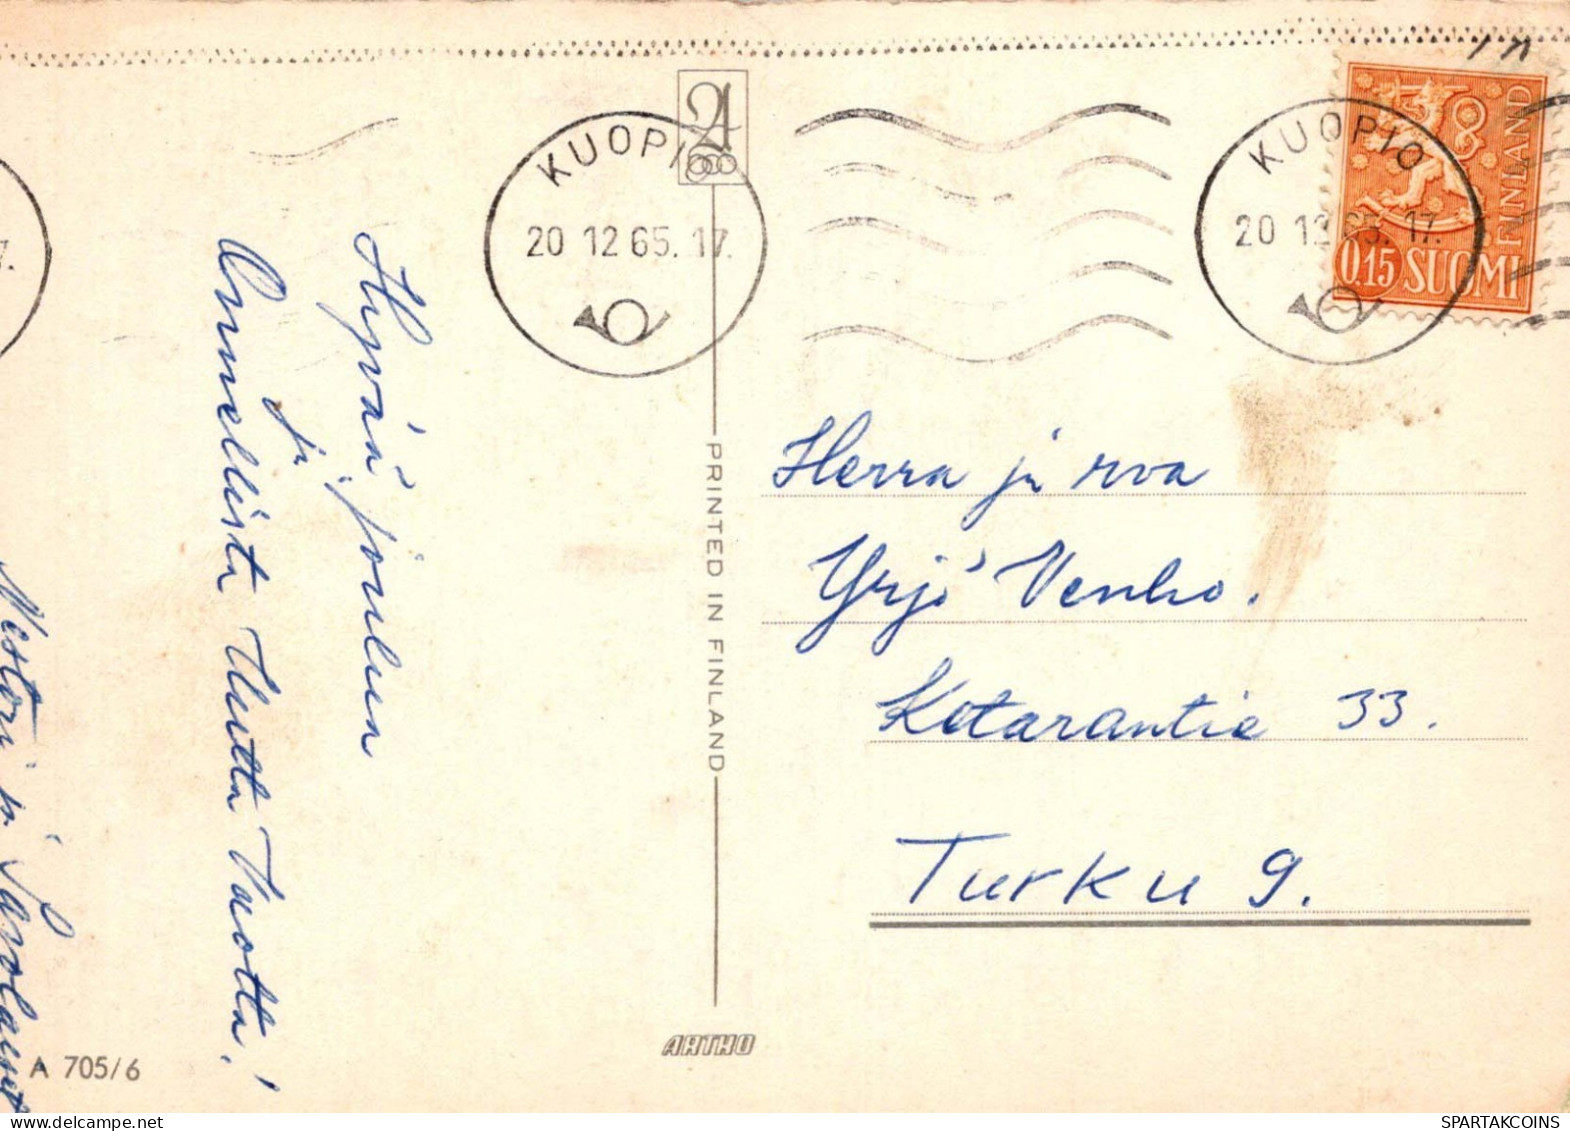 Hyvää joulun
ja
Onnellista Uutta Vuotta!
Nestori ja
A 705/6
KUOPIO
20 12 65. 17.
7.
PRINTED IN FINLAND
ARTKO
KUOPIO
20 12 65. 17.
FINLAND
0.15 SUOMI
Herra ja rva
Yrjö Venho.
Kotarantie 33.
Turku 9.
WWW.DELCAMPE.NET
SPARTAKCOINS